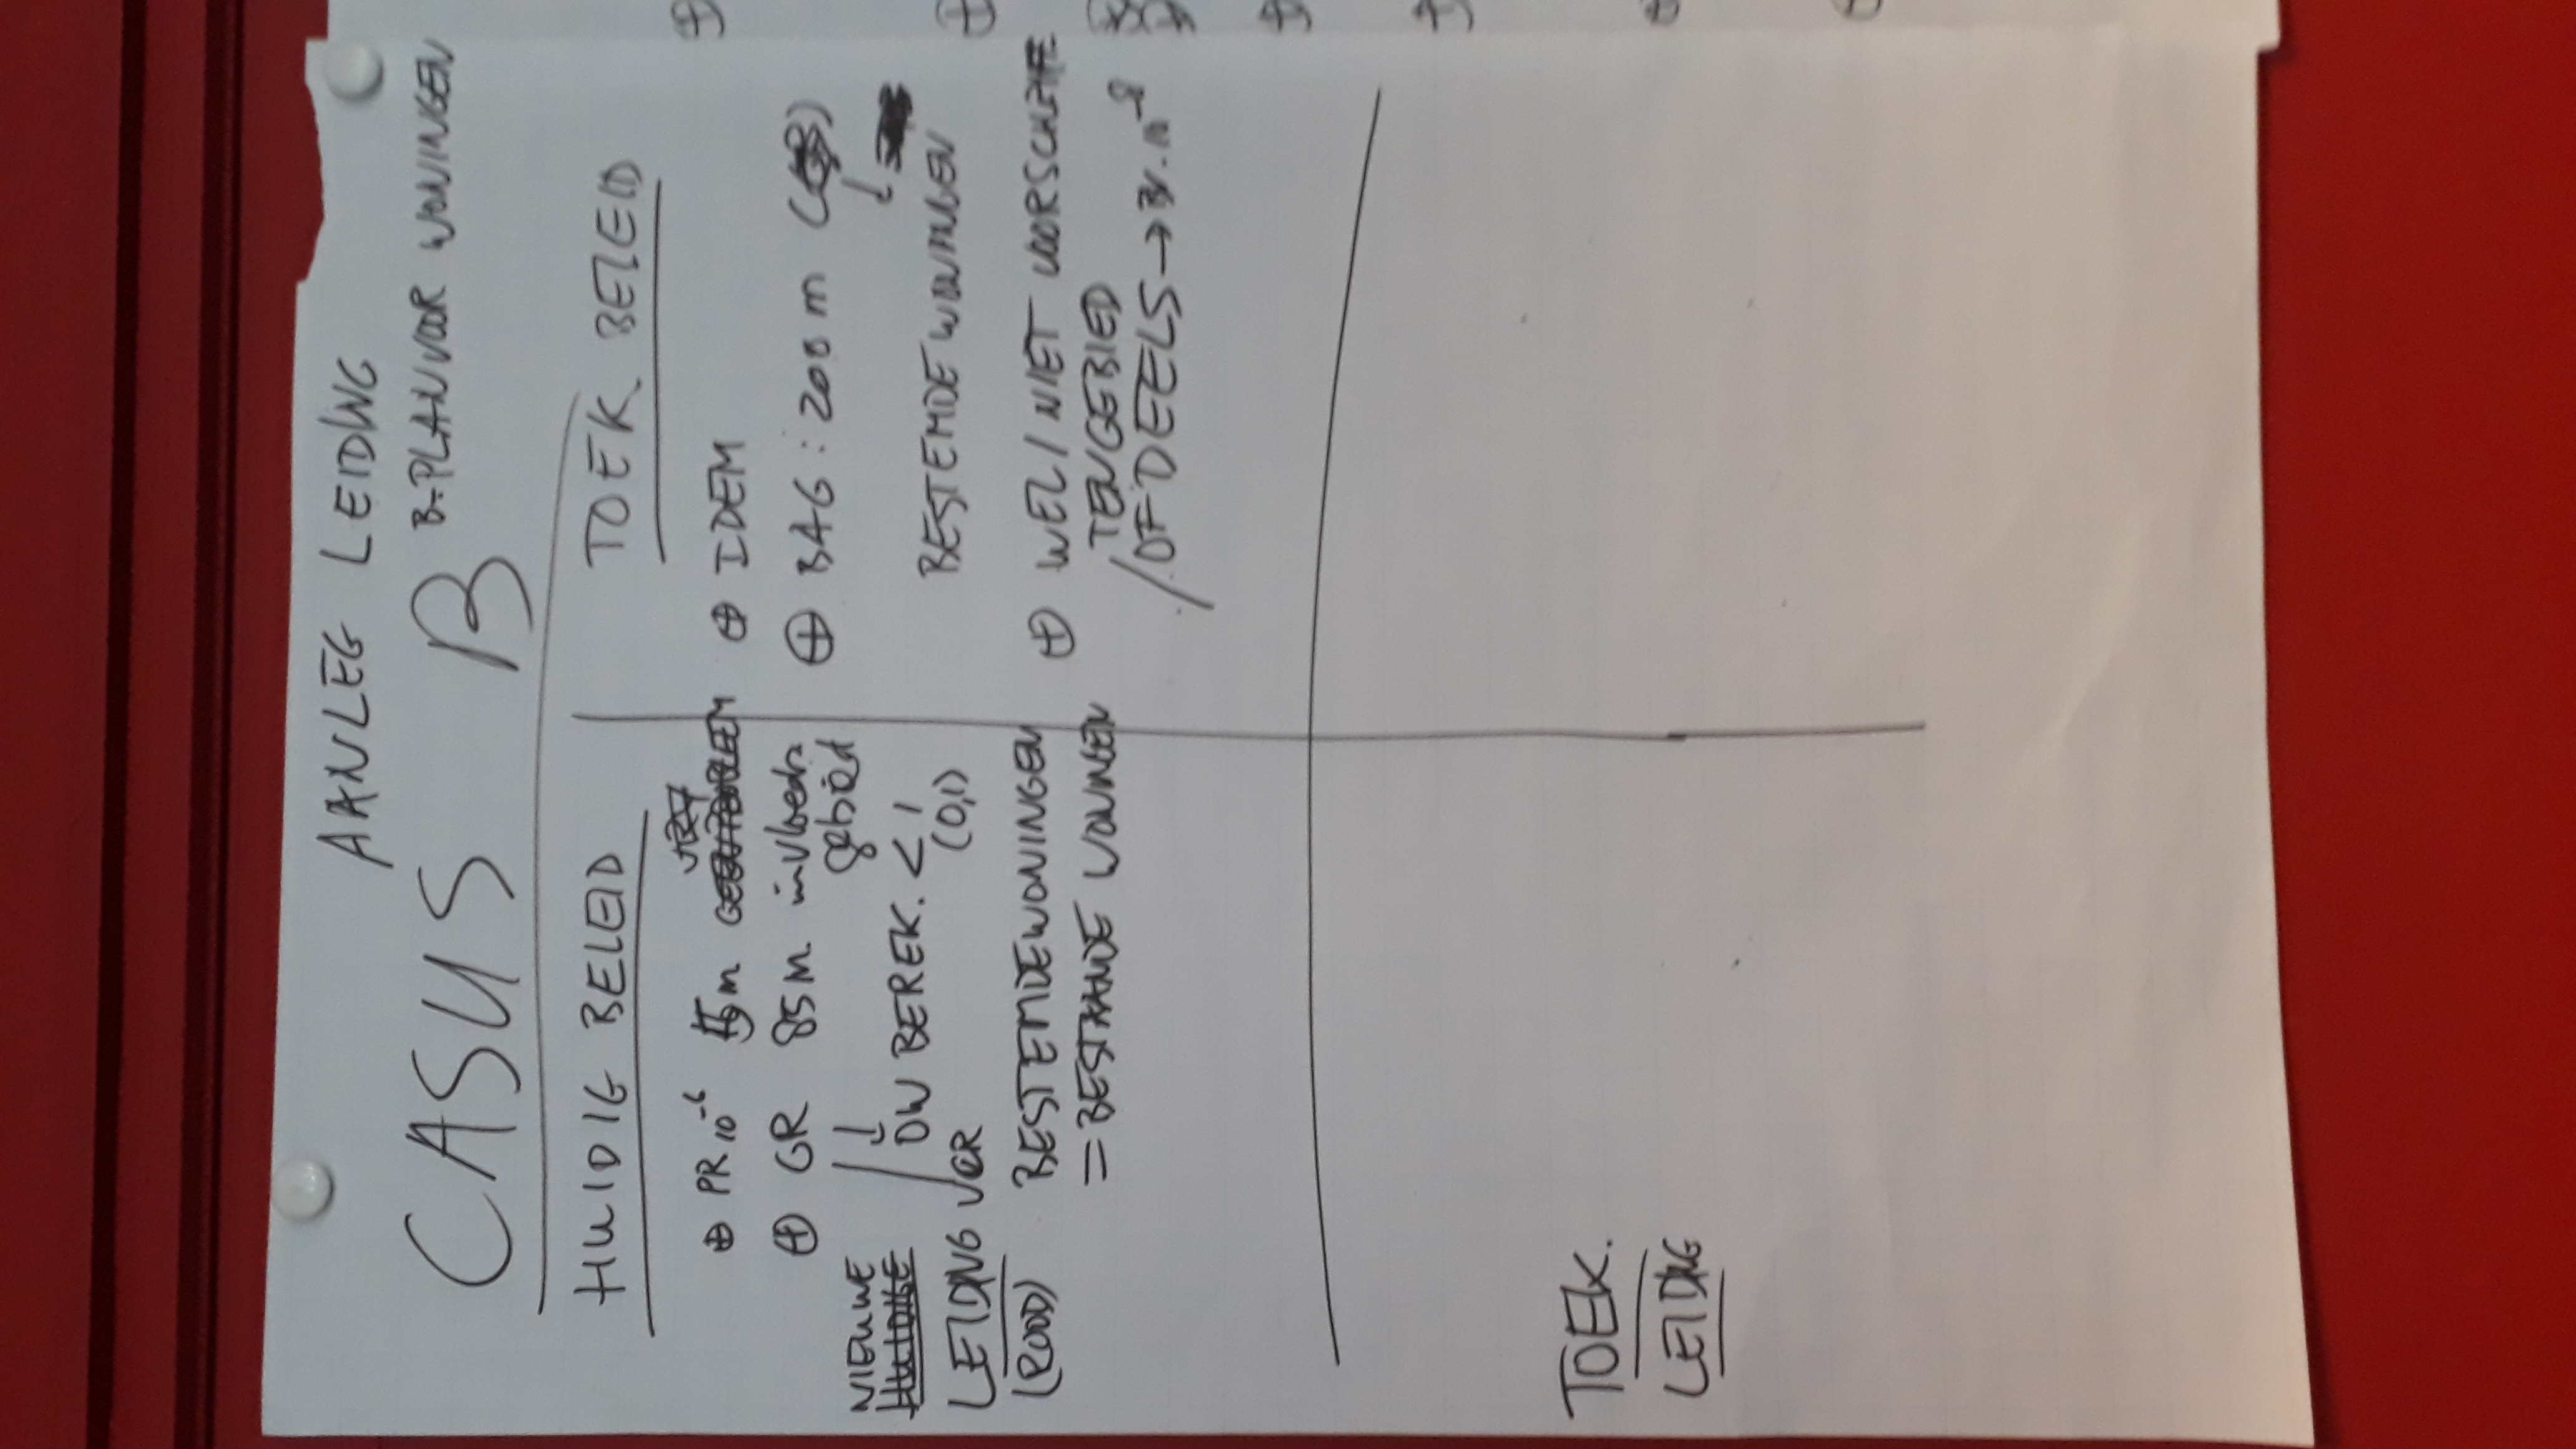 AANLEG LEIDING
CASUS B B-PLAN VOOR WONINGEN
HUIDIG BELEID
⊕ PR 10⁻⁶ m
⊕ GR 85 m invloeds
gebied
↓
OW BEREK. < 1
(0,1)
BESTEMDE WONINGEN
= BESTAANDE WONINGEN
TOEK. BELEID
⊕ IDEM
⊕ BAG : 200 m
BESTEMDE WONINGEN
⊕ WEL / NIET VOORSCHRIF
TENGEBIED
/ OF DEELS →
NIEUWE
HUIDIGE
LEIDING VER
(ROOD)
TOEK.
LEIDING